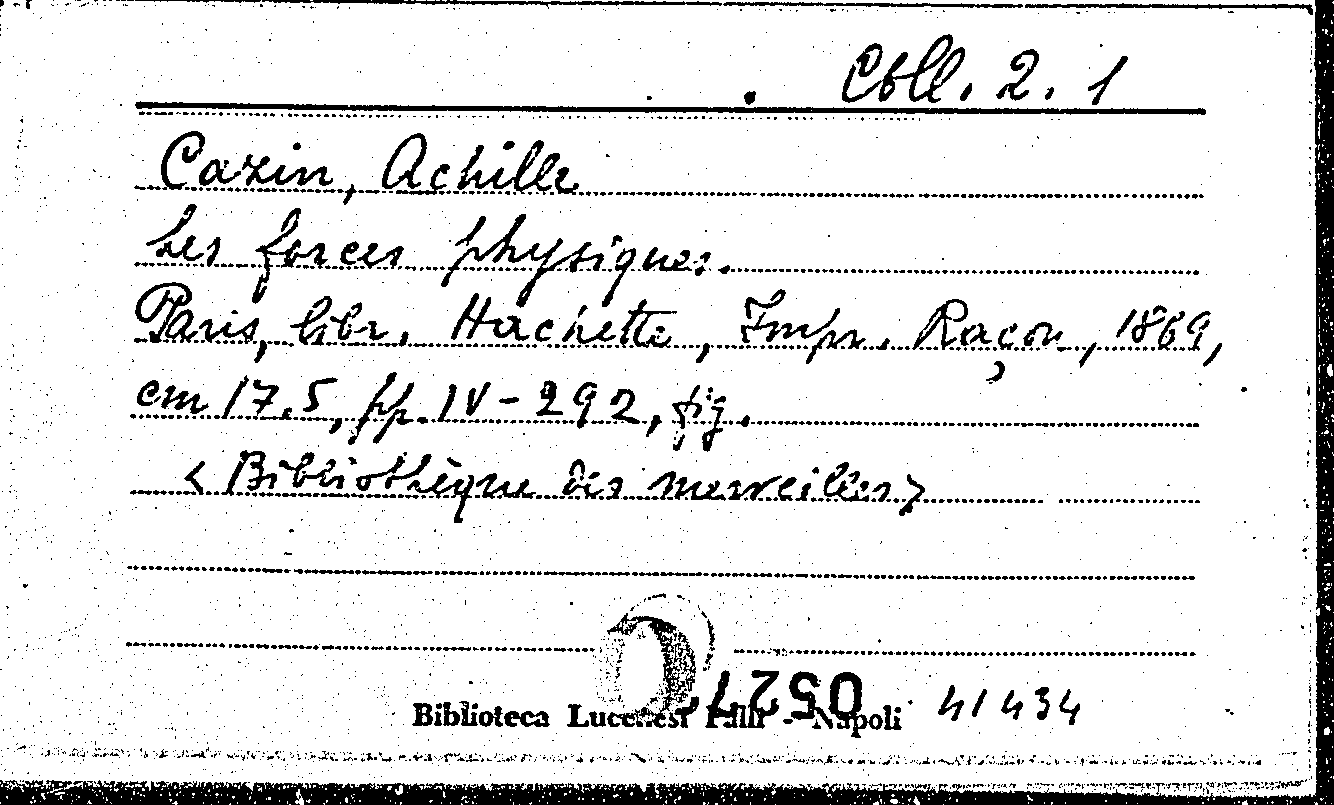 Coll. 2. 1
Cazin, Achille
Les forces physiques.
Paris, libr. Hachette, Impr. Raçon, 1869,
cm 17.5, pp. IV-292, fig.
< Bibliothèque des merveilles >
Biblioteca Lucchesi Palli - Napoli 41434